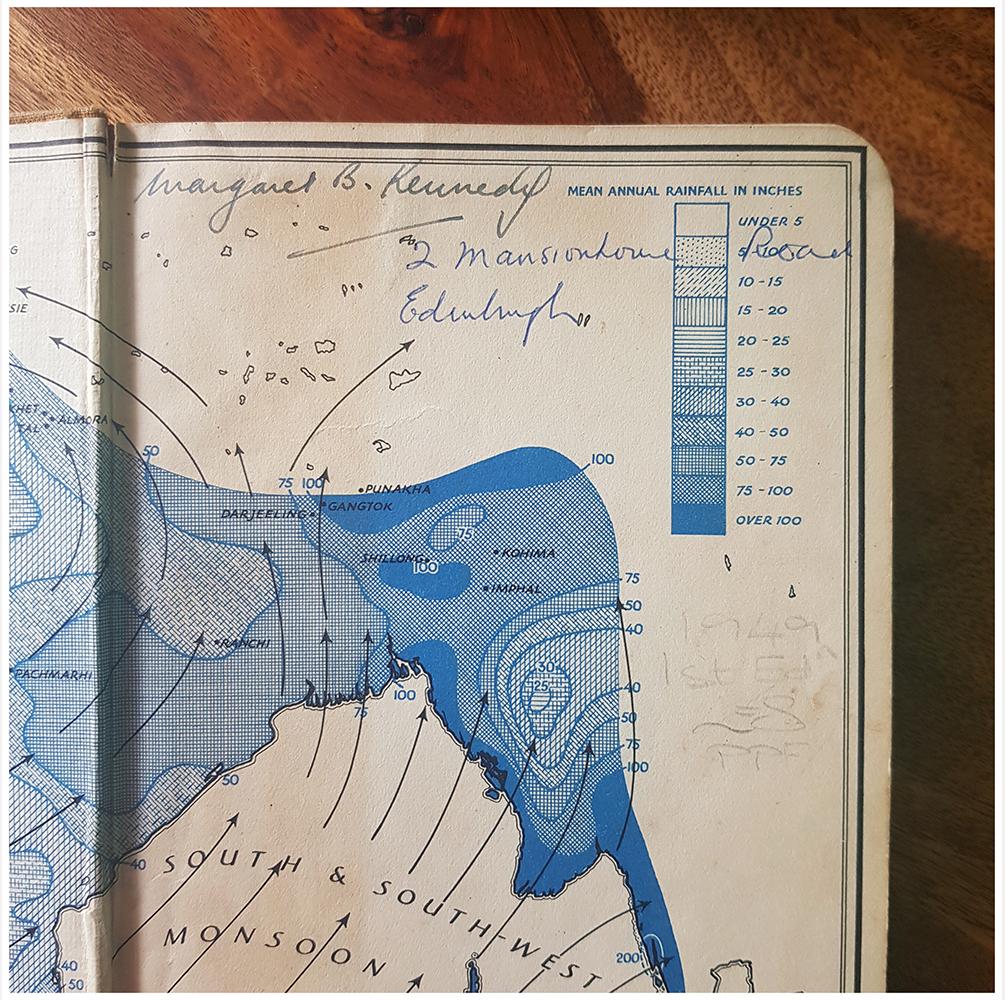 Margaret B. Kennedy
2 Mansionhouse Road
Edinburgh
MEAN ANNUAL RAINFALL IN INCHES
UNDER 5
5 - 10
10 - 15
15 - 20
20 - 25
25 - 30
30 - 40
40 - 50
50 - 75
75 - 100
OVER 100
G
SIE
KHET
TAL
ALMORA
50
75 100
100
PUNAKHA
GANGTOK
DARJEELING
75
SHILLONG
100
KOHIMA
IMPHAL
75
50
40
RANCHI
PACHMARHI
30
25
40
50
75
100
100
75
50
40
1949
1st Ed
SOUTH & SOUTH-WEST
MONSOON
200
40
50